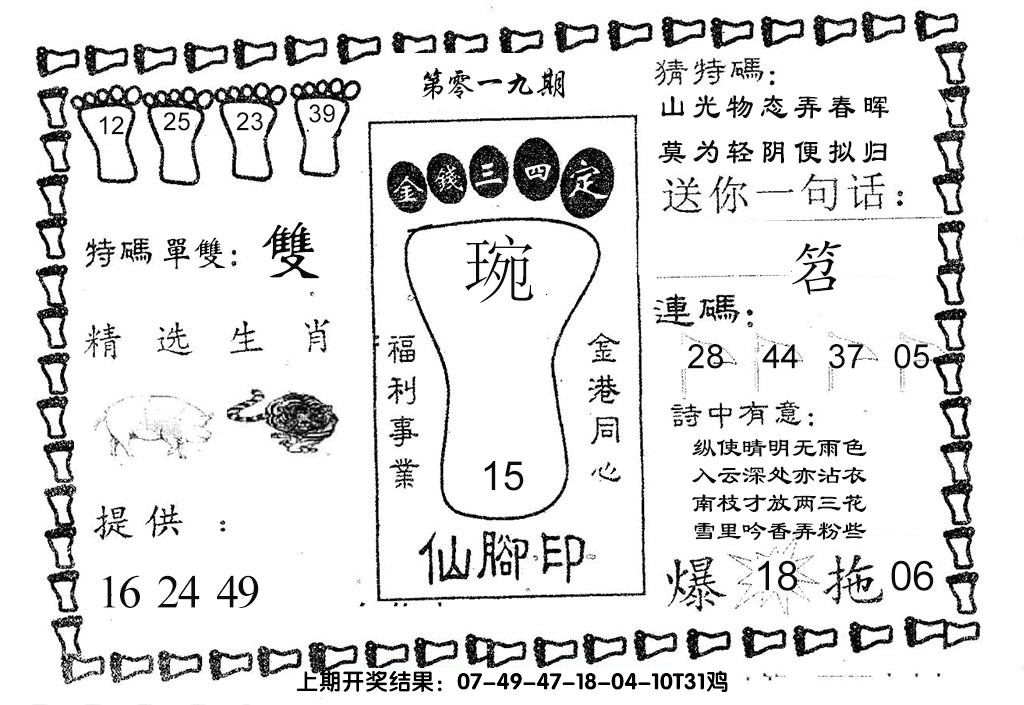 第零一九期
12 25 23 39
特碼單雙：雙
精选生肖
提供：
16 24 49
金錢三四定
琬
福利事業
金港同心
15
仙腳印
猜特碼：
山光物态弄春晖
莫为轻阴便拟归
送你一句话：
笤
連碼：
28 44 37 05
詩中有意：
纵使晴明无雨色
入云深处亦沾衣
南枝才放两三花
雪里吟香弄粉些
爆 18 拖 06
上期开奖结果：07-49-47-18-04-10T31鸡